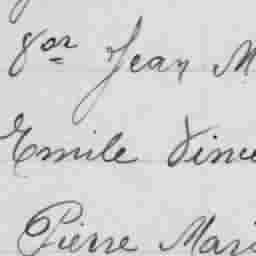 8or Jean M
Emile Vince
Pierre Mari